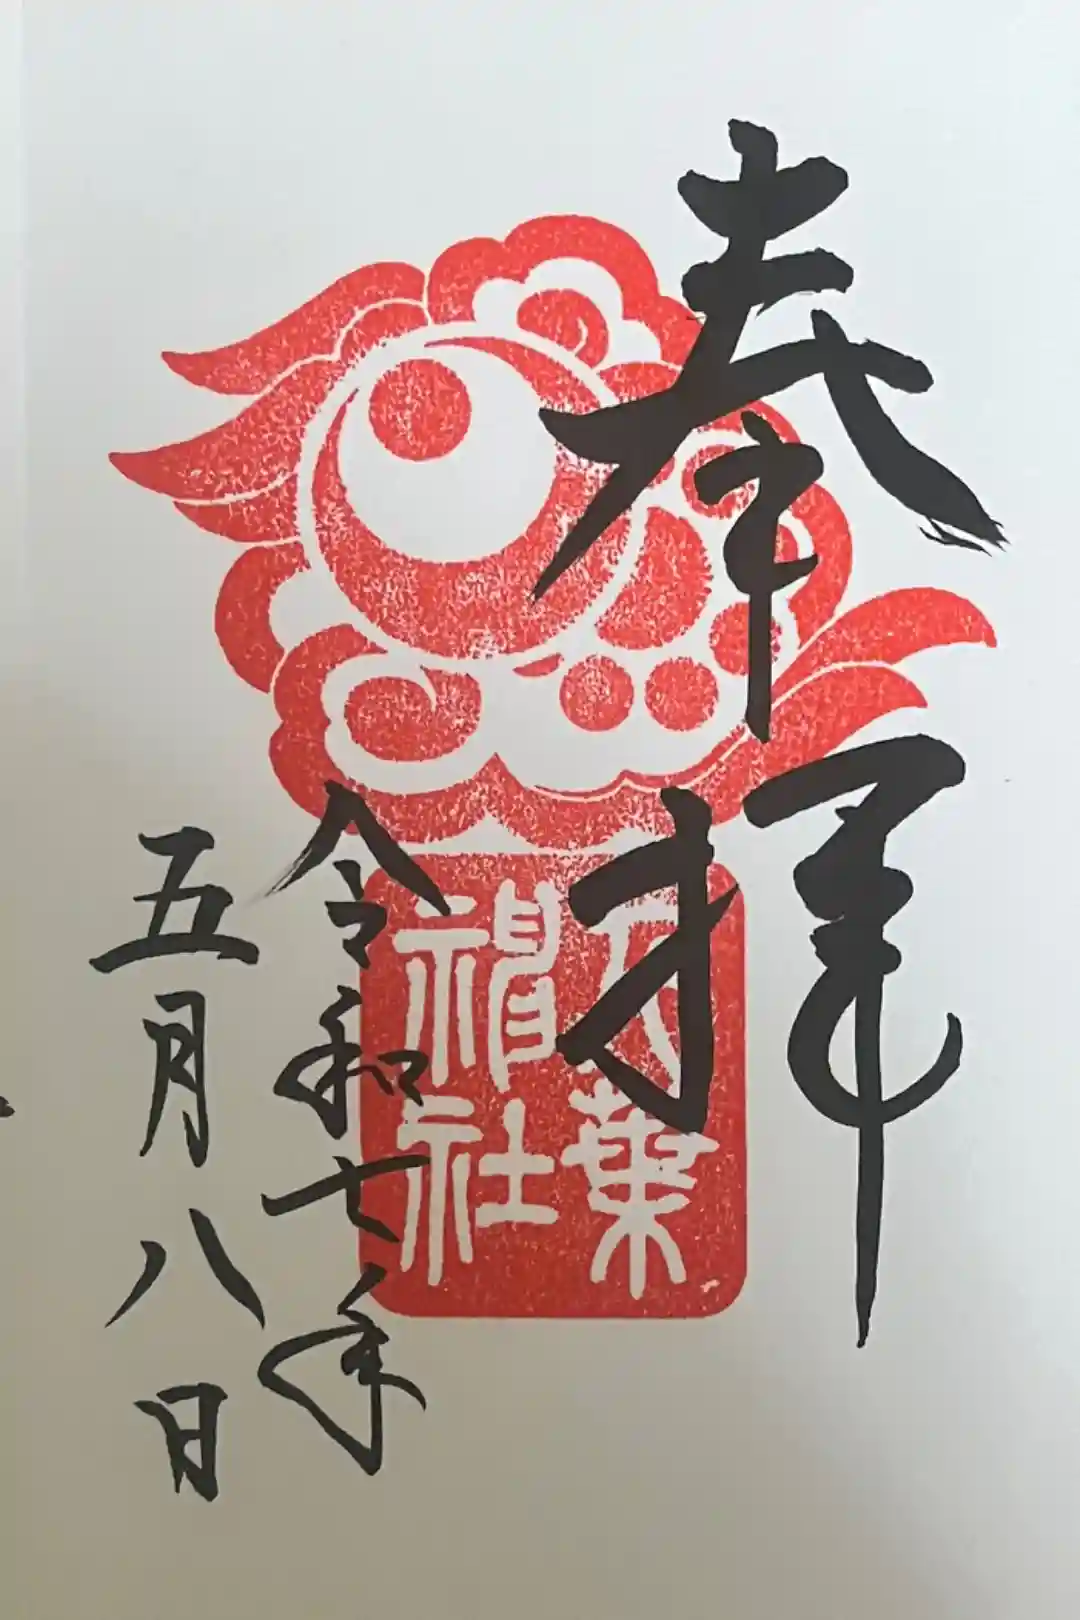 奉拝
千葉
神社
令和七年
五月八日